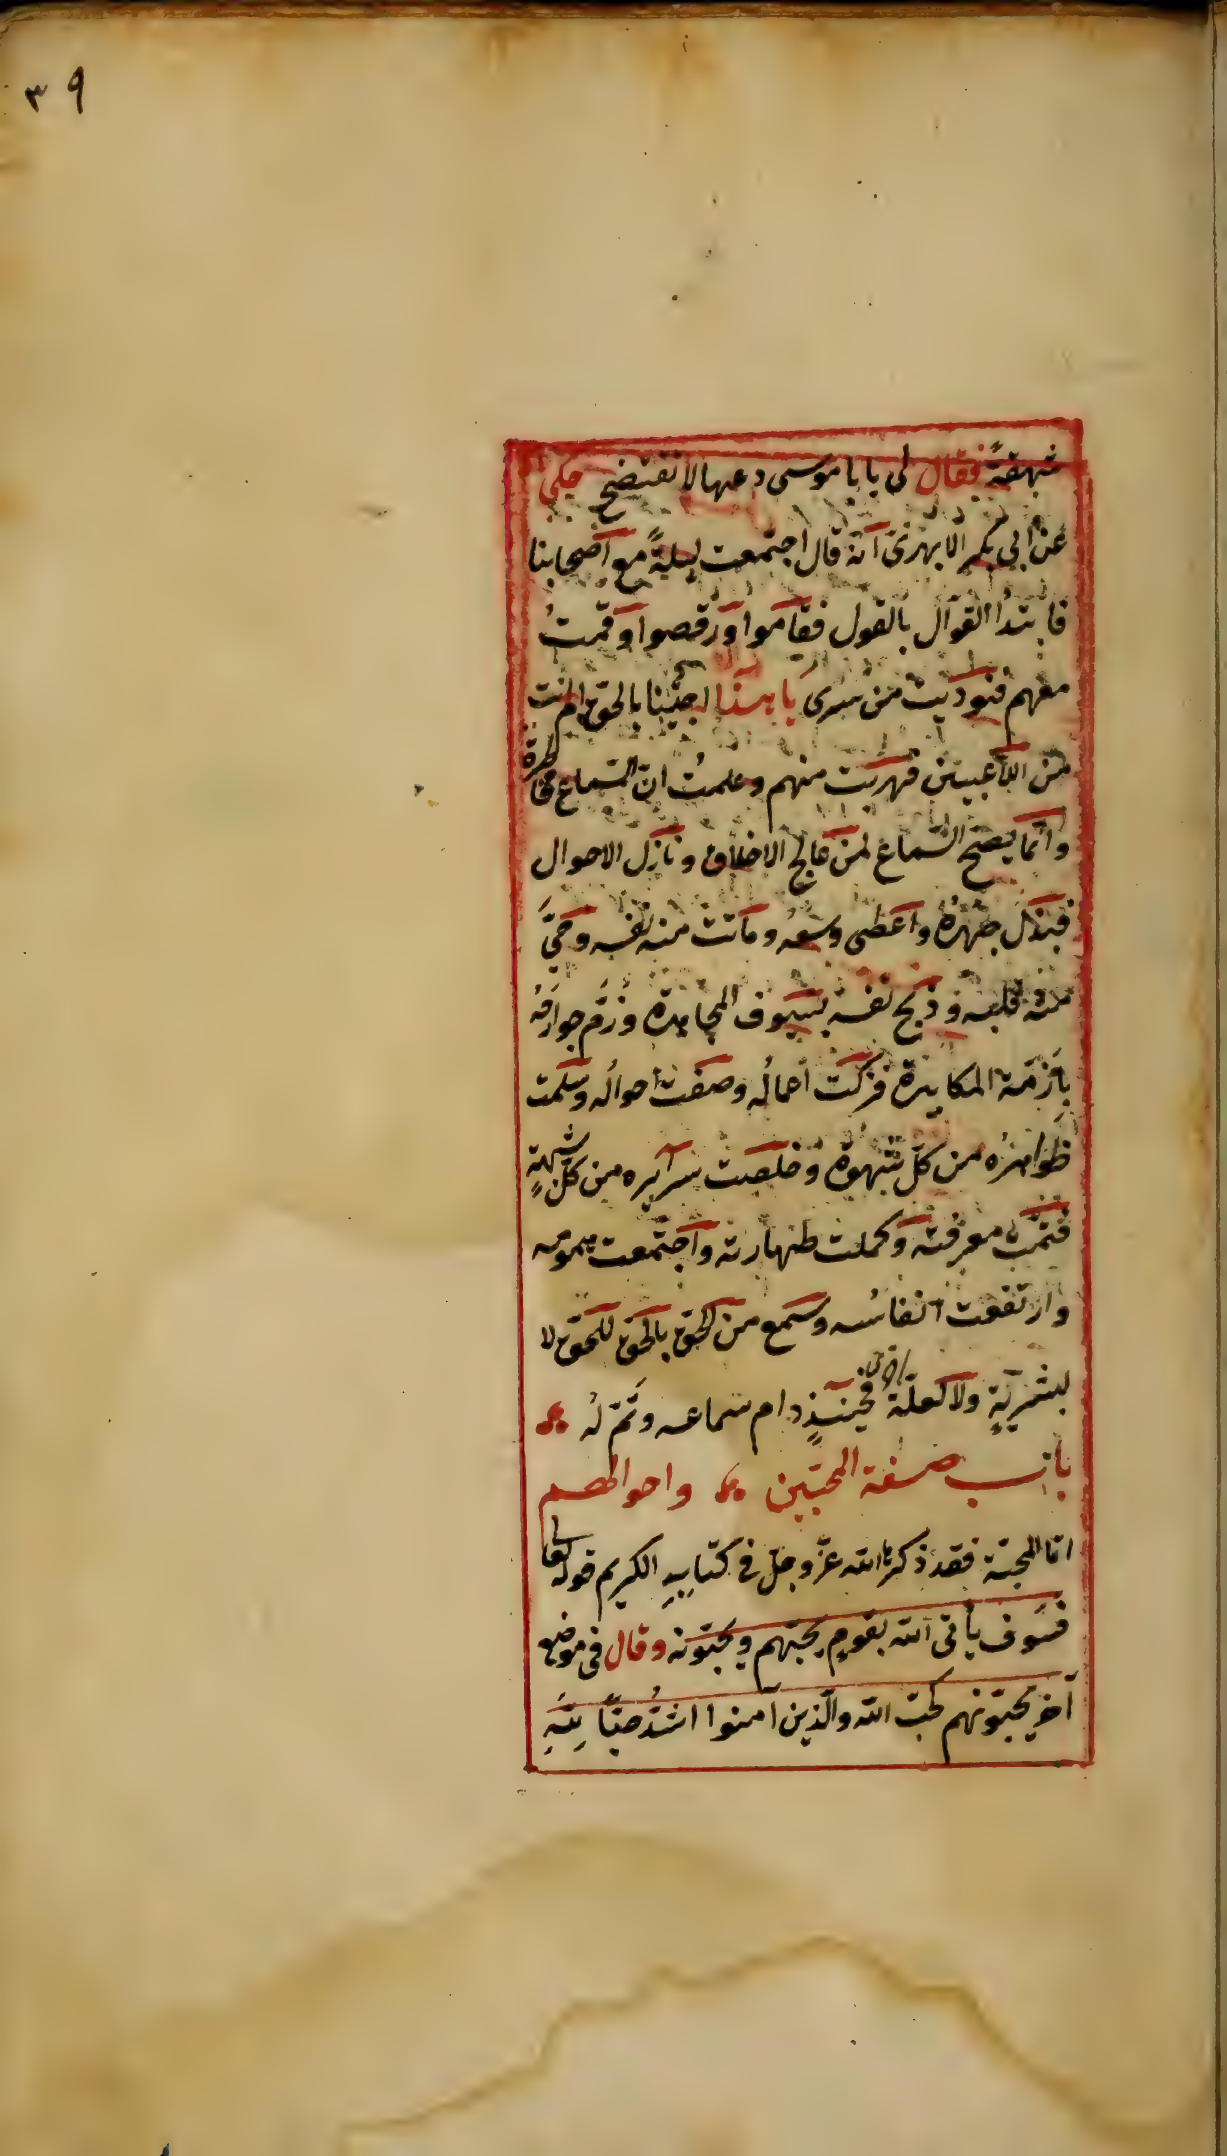 ٣٩
شهقة فقال لي يا با موسى دعها لا تفتضح حكي
عن ابي بكر الابهري انّه قال اجتمعت ليلةً مع اصحابنا
فابتدأ القوّال بالقول فقاموا ورقصوا وقمتُ
معهم فنوديت من سرى يا هذا اجئتنا بالحق ام انت
من اللاعبين فهربت منهم وعلمتُ ان السّماع مخاطرة
وانّما يصح السّماع لمن عالج الاخلاق ونازل الاحوال
فبذل جهدُه واعطى وسعه وماتت منه نفسه وحيَّ
منه قلبه وذبح نفسه بسيوف المجاهدة وزَمّ جوارحه
بازمّة المكابدة فزكت اعماله وصفت احواله وسلمت
ظواهره من كلّ شهوة وخلصت سرآيره من كلّ شبهةٍ
فتمّت معرفته وكملت طهارته واجتمعت همومه
وارتفعت انفاسه وسمع من الحق بالحق للحق لا
لبشريّةٍ ولا لعلّة فحينئذٍ دام سماعه وتَمّ لهُ
باب صفة المحبّين واحوالهم
امّا المحبّة فقد ذكرها الله عزّ وجلّ في كتابهِ الكريم قوله تعا
فسوف يأتى الله بقومٍ يحبّهم ويحبّونه وقال في موضع
آخر يحبّونهم كحبّ الله والّذين آمنوا اشدُّ حبًّا للهِ